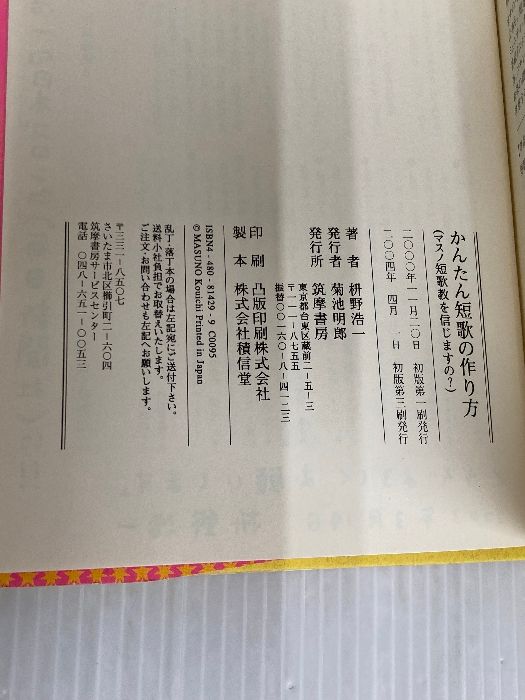 かんたん短歌の作り方
(マスノ短歌教を信じますの?)
二〇〇〇年一一月二〇日 初版第一刷発行
二〇〇四年 四月 一日 初版第三刷発行
著者 枡野浩一
発行者 菊池明郎
発行所 筑摩書房
東京都台東区蔵前二-五-三
〒一一一-八七五五
振替〇〇一六〇-八-四一二三
印刷 凸版印刷株式会社
製本 株式会社積信堂
ISBN4-480-81429-9 C0095
© MASUNO Kouichi Printed in Japan
乱丁・落丁本の場合は左記宛にご送付下さい。
送料小社負担でお取替えいたします。
ご注文・お問い合わせも左記へお願いします。
〒三三一-八五〇七
さいたま市北区櫛引町二-六〇四
筑摩書房サービスセンター
電話 〇四八-六五一-〇〇五三